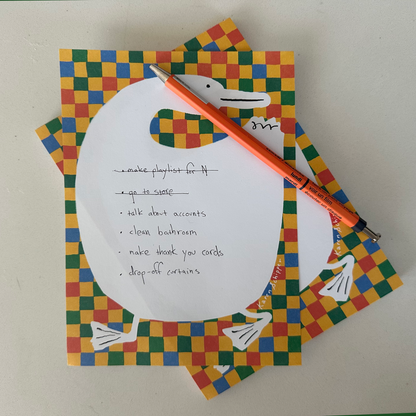 • make playlist for N
• go to store
• talk about accounts
• clean bathroom
• make thank you cards
• drop-off curtains